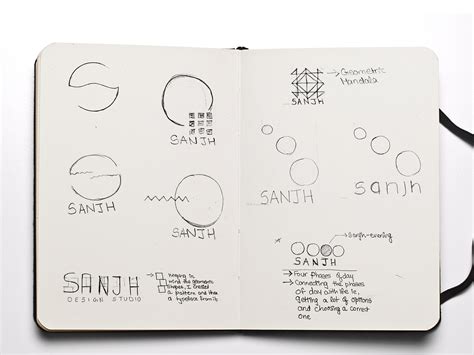 SANJH
SANJH
SANJH
SANJH
DESIGN STUDIO
Keeping in
mind the geometric
shapes, I created
a pattern and then
a typeface from it
Geometric
Mandala
SANJH
SANJH
sanjh
Sanjh-evening
SANJH
Four phases of day
Connecting the phases
of day with life i.e,
getting a lot of options
and choosing a correct
one